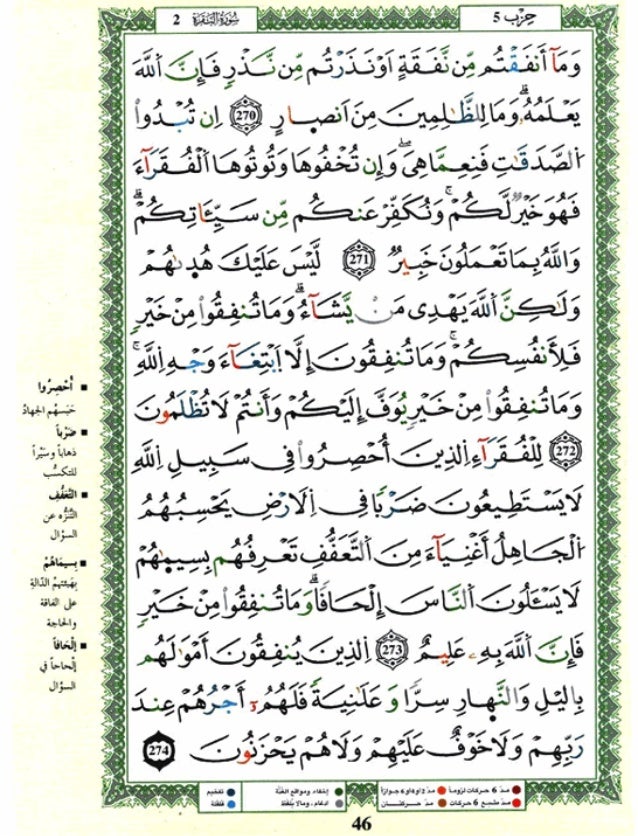 سُورَةُ البَقَرَة 2
حِزْب 5
وَمَآ أَنفَقْتُم مِّن نَّفَقَةٍ اَوْ نَذَرْتُم مِّن نَّذْرٍ فَإِنَّ اَللَّهَ
يَعْلَمُهُۥ وَمَا لِلظَّٰلِمِينَ مِنَ اَنصارٍ 270 اِن تُبْدُواْ
اُلصَّدَقَٰتِ فَنِعِمَّا هِيَ وَإِن تُخْفُوهَا وَتُوتُوهَا اَلْفُقَرَآءَ
فَهُوَ خَيْرٌ لَّكُمْ وَنُكَفِّرْ عَنكُم مِّن سَيِّـَٔاتِكُمْ
وَاللَّهُ بِمَا تَعْمَلُونَ خَبِيرٌ 271 لَّيْسَ عَلَيْكَ هُدَىٰهُمْ
وَلَٰكِنَّ اَللَّهَ يَهْدِى مَنْ يَّشَآءُ وَمَا تُنفِقُواْ مِنْ خَيْرٍ
فَلِأَنفُسِكُمْ وَمَا تُنفِقُونَ إِلَّا اَبْتِغَآءَ وَجْهِ اِللَّهِ
وَمَا تُنفِقُواْ مِنْ خَيْرٍ يُوَفَّ إِلَيْكُمْ وَأَنتُمْ لَا تُظْلَمُونَ
272 لِلْفُقَرَآءِ اِلذِينَ أُحْصِرُواْ فِى سَبِيلِ اِللَّهِ
لَا يَسْتَطِيعُونَ ضَرْبًا فِى اِلَارْضِ يَحْسِبُهُمُ
اُلْجَاهِلُ أَغْنِيَآءَ مِنَ اَلتَّعَفُّفِ تَعْرِفُهُم بِسِيمٰهُمْ
لَا يَسْـَٔلُونَ اَلنَّاسَ إِلْحَافًا وَمَا تُنفِقُواْ مِنْ خَيْرٍ
فَإِنَّ اَللَّهَ بِهِۦ عَلِيمٌ 273 اِلذِينَ يُنفِقُونَ أَمْوَٰلَهُم
بِاليْلِ وَالنَّهارِ سِرًّا وَعَلَٰنِيَةً فَلَهُمُۥٓ أَجْرُهُمْ عِندَ
رَبِّهِمْ وَلَا خَوْفٌ عَلَيْهِمْ وَلَا هُمْ يَحْزَنُونَ 274
■ أُحْصِرُوا
حَبَسَهُم الجهادُ
■ ضَرْباً
ذهاباً وسَيْراً
للتكسُّب
■ التَّعَفُّفِ
التَّنَزُّه عن
السؤال
■ بِسِيمَاهُمْ
بهَيئتِهمُ الدَّالَّةِ
على الفاقة
والحاجة
■ إلْحَافاً
إلْحاحاً في
السؤال
مدّ 6 حركات لزوماً
مدّ 2 أو 4 أو 6 جوازاً
إخفاء، ومواقع الغُنَّة
تفخيم
مدّ مشبع 6 حركات
مدّ حركتان
إدغام، وما لا يُلفَظ
قلقلة
46